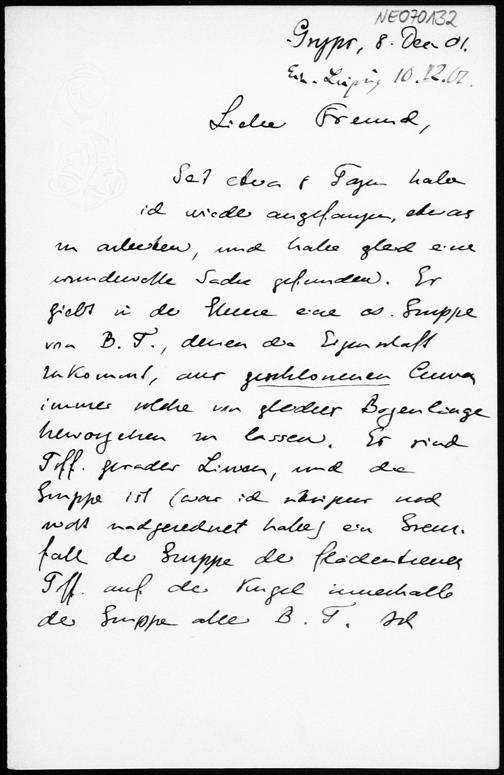 NE070132
Grypsw, 8. Dec 01.
Erh. Leipzig 10.12.01.
Lieber Freund,
Seit etwa 8 Tagen habe
ich wieder angefangen, etwas
zu arbeiten, und habe gleich eine
wundervolle Sache gefunden. Es
giebt in der Ebene eine ∞ Gruppe
von B. T., denen die Eigenschaft
zukommt, aus geschlossenen Curven
immer solche von gleicher Bogenlänge
hervorgehen zu lassen. Es sind
Tff. gerader Linien, und die
Gruppe ist (was ich übrigens noch
nicht nachgerechnet habe) ein Grenz-
fall der Gruppe der flächentreuen
Tff. auf der Kugel innerhalb
der Gruppe aller B. T. Ich